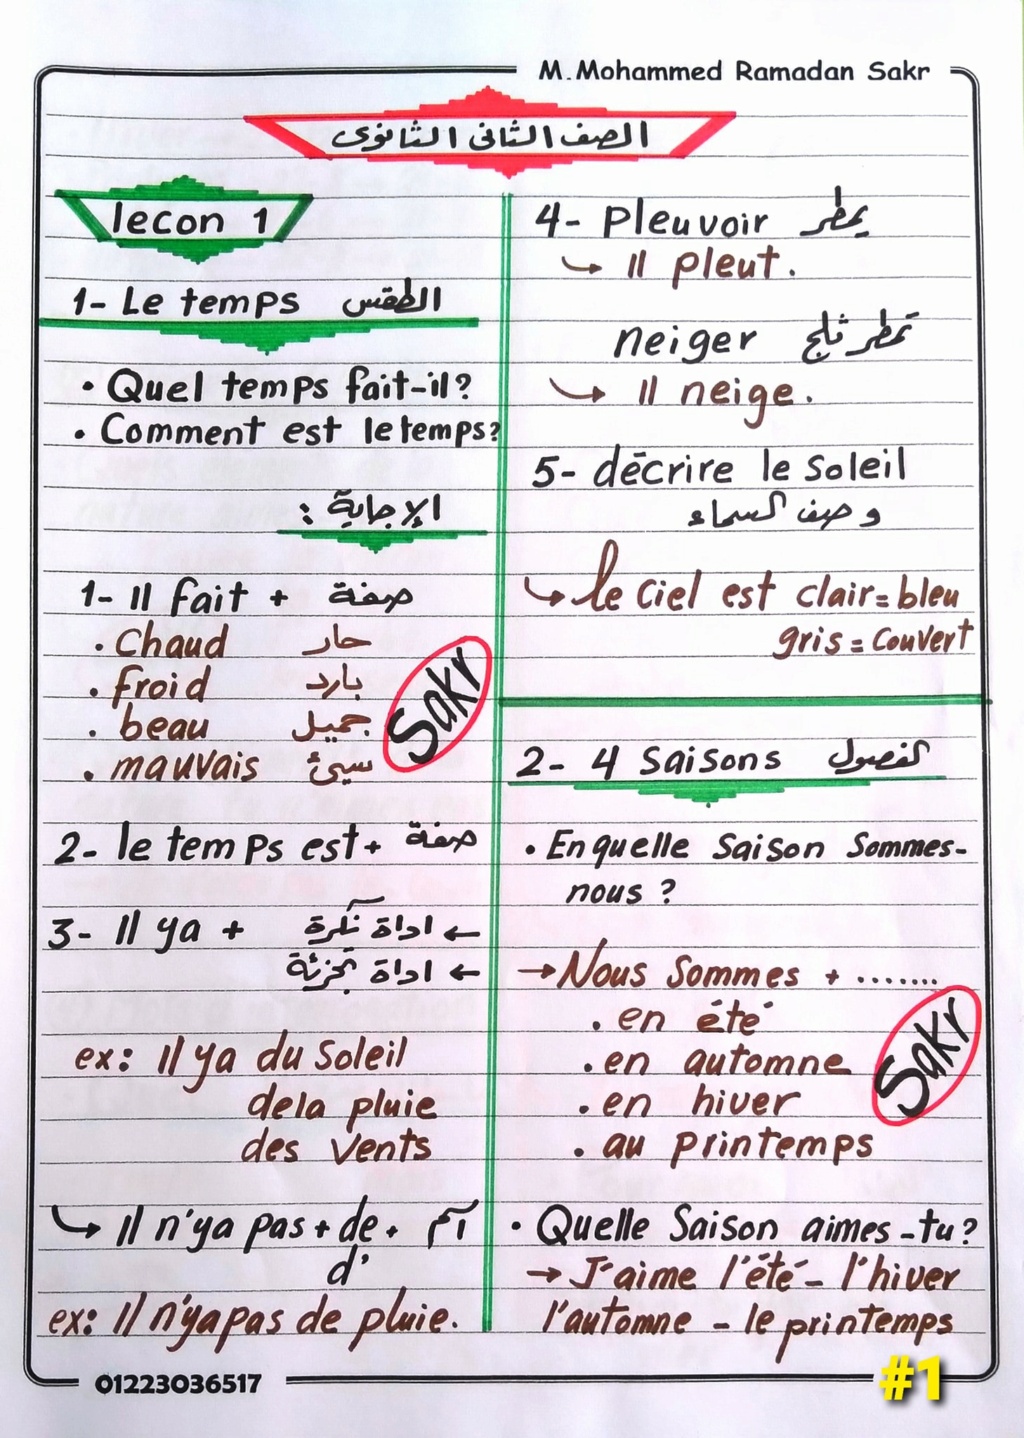 M.Mohammed Ramadan Sakr
الصف الثانى الثانوى
lecon 1
1- Le temps الطقس
• Quel temps fait-il?
• Comment est le temps?
الإجابة :
1- Il fait + صفة
• Chaud حار
• froid بارد
• beau جميل
• mauvais سيئ
2- le temps est + صفة
3- Il ya + اداة نكرة ←
اداة تجزئة ←
ex: Il ya du Soleil
dela pluie
des vents
↳ Il n'ya pas + de + اسم
d'
ex: Il n'ya pas de pluie.
4- Pleuvoir يمطر
↳ Il pleut.
neiger تمطر ثلج
↳ Il neige.
5- décrire le Soleil
وصف السماء
↳ le Ciel est clair = bleu
gris = Couvert
2- 4 Saisons الفصول
• En quelle Saison Sommes-
nous ?
→ Nous Sommes + .......
• en été
• en automne
• en hiver
• au printemps
• Quelle Saison aimes-tu?
→ J'aime l'été - l'hiver
l'automne - le printemps
Sakr
Sakr
01223036517
#1